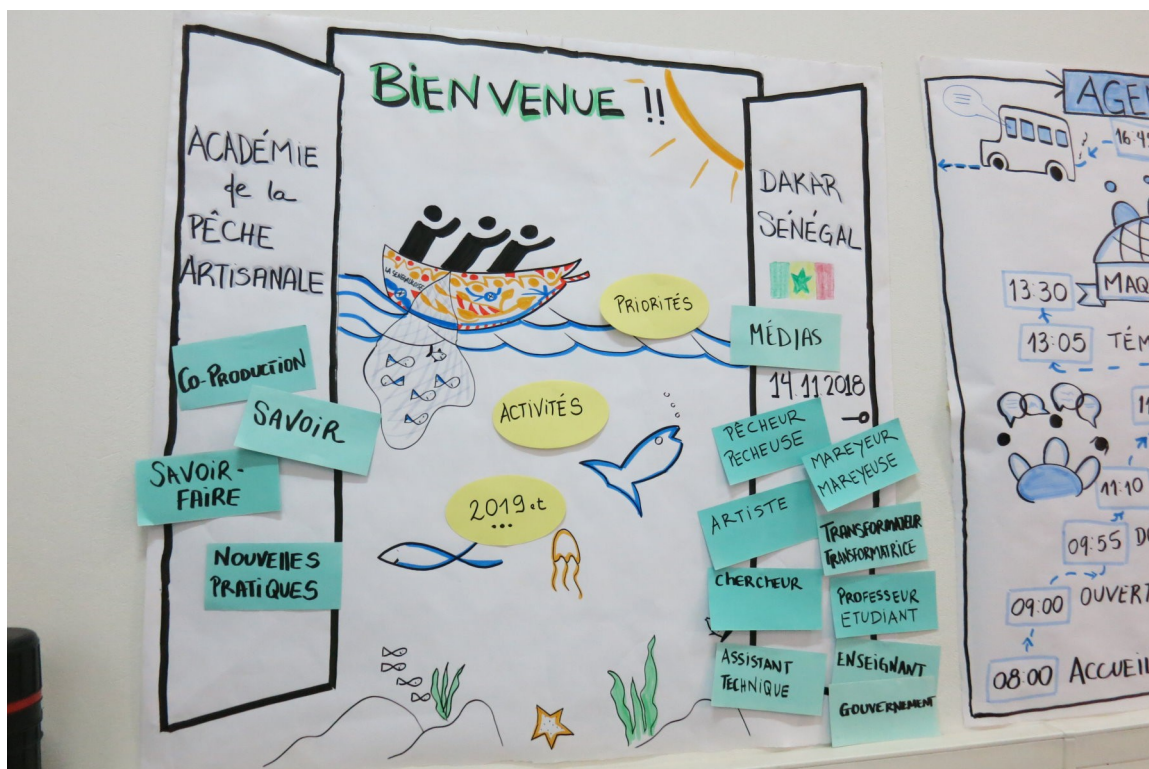 BIENVENUE !!
ACADÉMIE
de la
PÊCHE
ARTISANALE
CO-PRODUCTION
SAVOIR
SAVOIR-
FAIRE
NOUVELLES
PRATIQUES
PRIORITÉS
ACTIVITÉS
2019 et
...
DAKAR
SÉNÉGAL
MÉDIAS
14.11.2018
PÊCHEUR
PECHEUSE
MAREYEUR
MAREYEUSE
ARTISTE
TRANSFORMATEUR
TRANSFORMATRICE
CHERCHEUR
PROFESSEUR
ETUDIANT
ASSISTANT
TECHNIQUE
ENSEIGNANT
GOUVERNEMENT
13:30
13:05
11:10
09:55
09:00
08:00 ACCUEIL